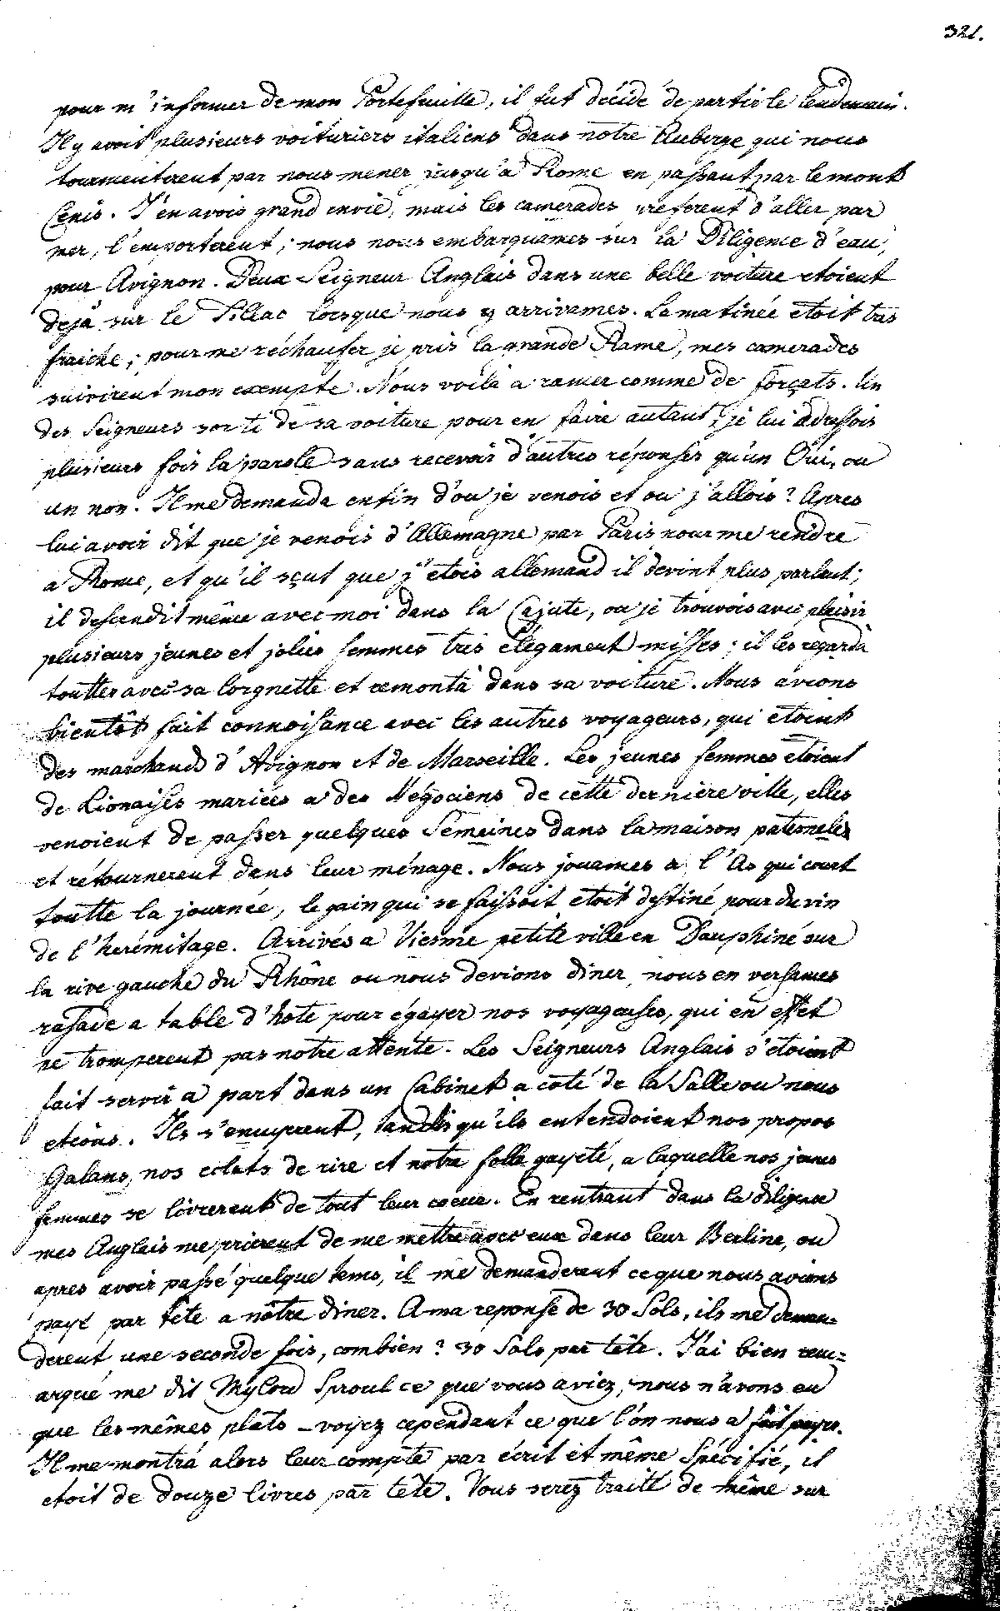 321.
pour m'informer de mon Portefeuille, il fut décidé de partir le lendemain.
Il y avoit plusieurs voituriers italiens dans notre Auberge qui nous
tourmenterent par nous mener jusqu'a Rome en passant par le mont
Cenis. J'en avois grand envie, mais les camerades preferent d'aller par
mer, l'emporterent; nous nous embarquames sur la Diligence d'eau,
pour Avignon. Deux Seigneur Anglais dans une belle voiture etoient
dejà sur le Tillac lorsque nous y arrivames. La matinée etoit très
fraiche; pour me réchaufer je pris la grande Rame, mes camerades
suivirent mon exempte. Nous voilà a ramer comme de forçats. Un
des Seigneurs sorti de sa voiture pour en faire autant, je lui adressois
plusieurs fois la parole sans recevoir d'autres réponses qu'un Oui, ou
un non. Il me demanda enfin d'ou je venois et ou j'allois? Apres
lui avoir dit que je venois d'Allemagne par Paris pour me rendre
a Rome, et qu'il sçut que j'etois allemand il devint plus parlant;
il descendit même avec moi dans la Cajute, ou je trouvois avec plaisir
plusieurs jeunes et jolies femmes très élegament misses; il les regarda
touttes avec sa lorgnette et remonta dans sa voiture. Nous avions
bientôt fait connoisance avec les autres voyageurs, qui etoint
des marchands d'Avignon et de Marseille. Les jeunes femmes etoient
de Lionaises mariées a des Négociens de cette dernière ville, elles
venoient de passer quelques Semeines dans la maison paternele
et rétournerent dans leur ménage. Nous jouames a l'As qui court
toutte la journée, le gain qui se faissoit etoit destiné pour du vin
de l'herémitage. Arrivés a Vienne petite ville en Dauphiné sur
la rive gauche du Rhône ou nous devions diner, nous en versames
rasade a table d'hote pour égayer nos voyageuses, qui en effet
ne tromperent pas notre attente. Les Seigneurs Anglais s'etoient
fait servir a part dans un Cabinet a coté de la Salle ou nous
etions. Ils s'enuyerent, tandis qu'ils entendoient nos propos
Galans, nos eclats de rire et notre folle gayeté, a laquelle nos jeunes
femmes se livrerent de tout leur coeur. En rentrant dans la diligence
mes Anglais me prierent de me mettre avec eux dans leur Berline, ou
apres avoir passé quelque tems, il me demanderent ce que nous avions
payé par tête a nôtre diner. A ma reponse de 30 Sols, ils me deman=
derent une seconde fois, combien? 30 Sols par tête. J'ai bien rem=
arqué me dit Mylord Sproul ce que vous aviez, nous n'avons eu
que les mêmes plats - voyez cependant ce que l'on nous a fait payer.
Il me montrá alors leur compte par écrit et même Spécifié, il
etoit de douze livres par tête. Vous serez traité de même sur